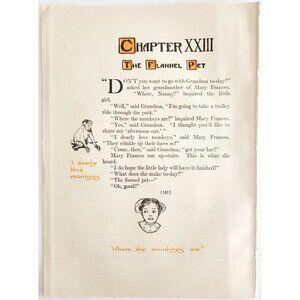 CHAPTER XXIII
THE FLANNEL PET
"DON'T you want to go with Grandma to-day?"
asked her grandmother of Mary Frances.
"Where, Nanny?" inquired the little
girl.
"Well," said Grandma, "I'm going to take a trolley
ride through the park."
"Where the monkeys are?" inquired Mary Frances.
"Yes," said Grandma. "I thought you'd like to
share my 'afternoon out.'"
"I dearly love monkeys," said Mary Frances.
"They crinkle up their faces so!"
"Come, then," said Grandma, "get your hat!"
Mary Frances ran up-stairs. This is what she
heard:
"I do hope the little lady will have it finished!"
"What does she make to-day?"
"The flannel pet—"
"Oh, good!"
I dearly
love
monkeys
[162]
"Where the monkeys are?"